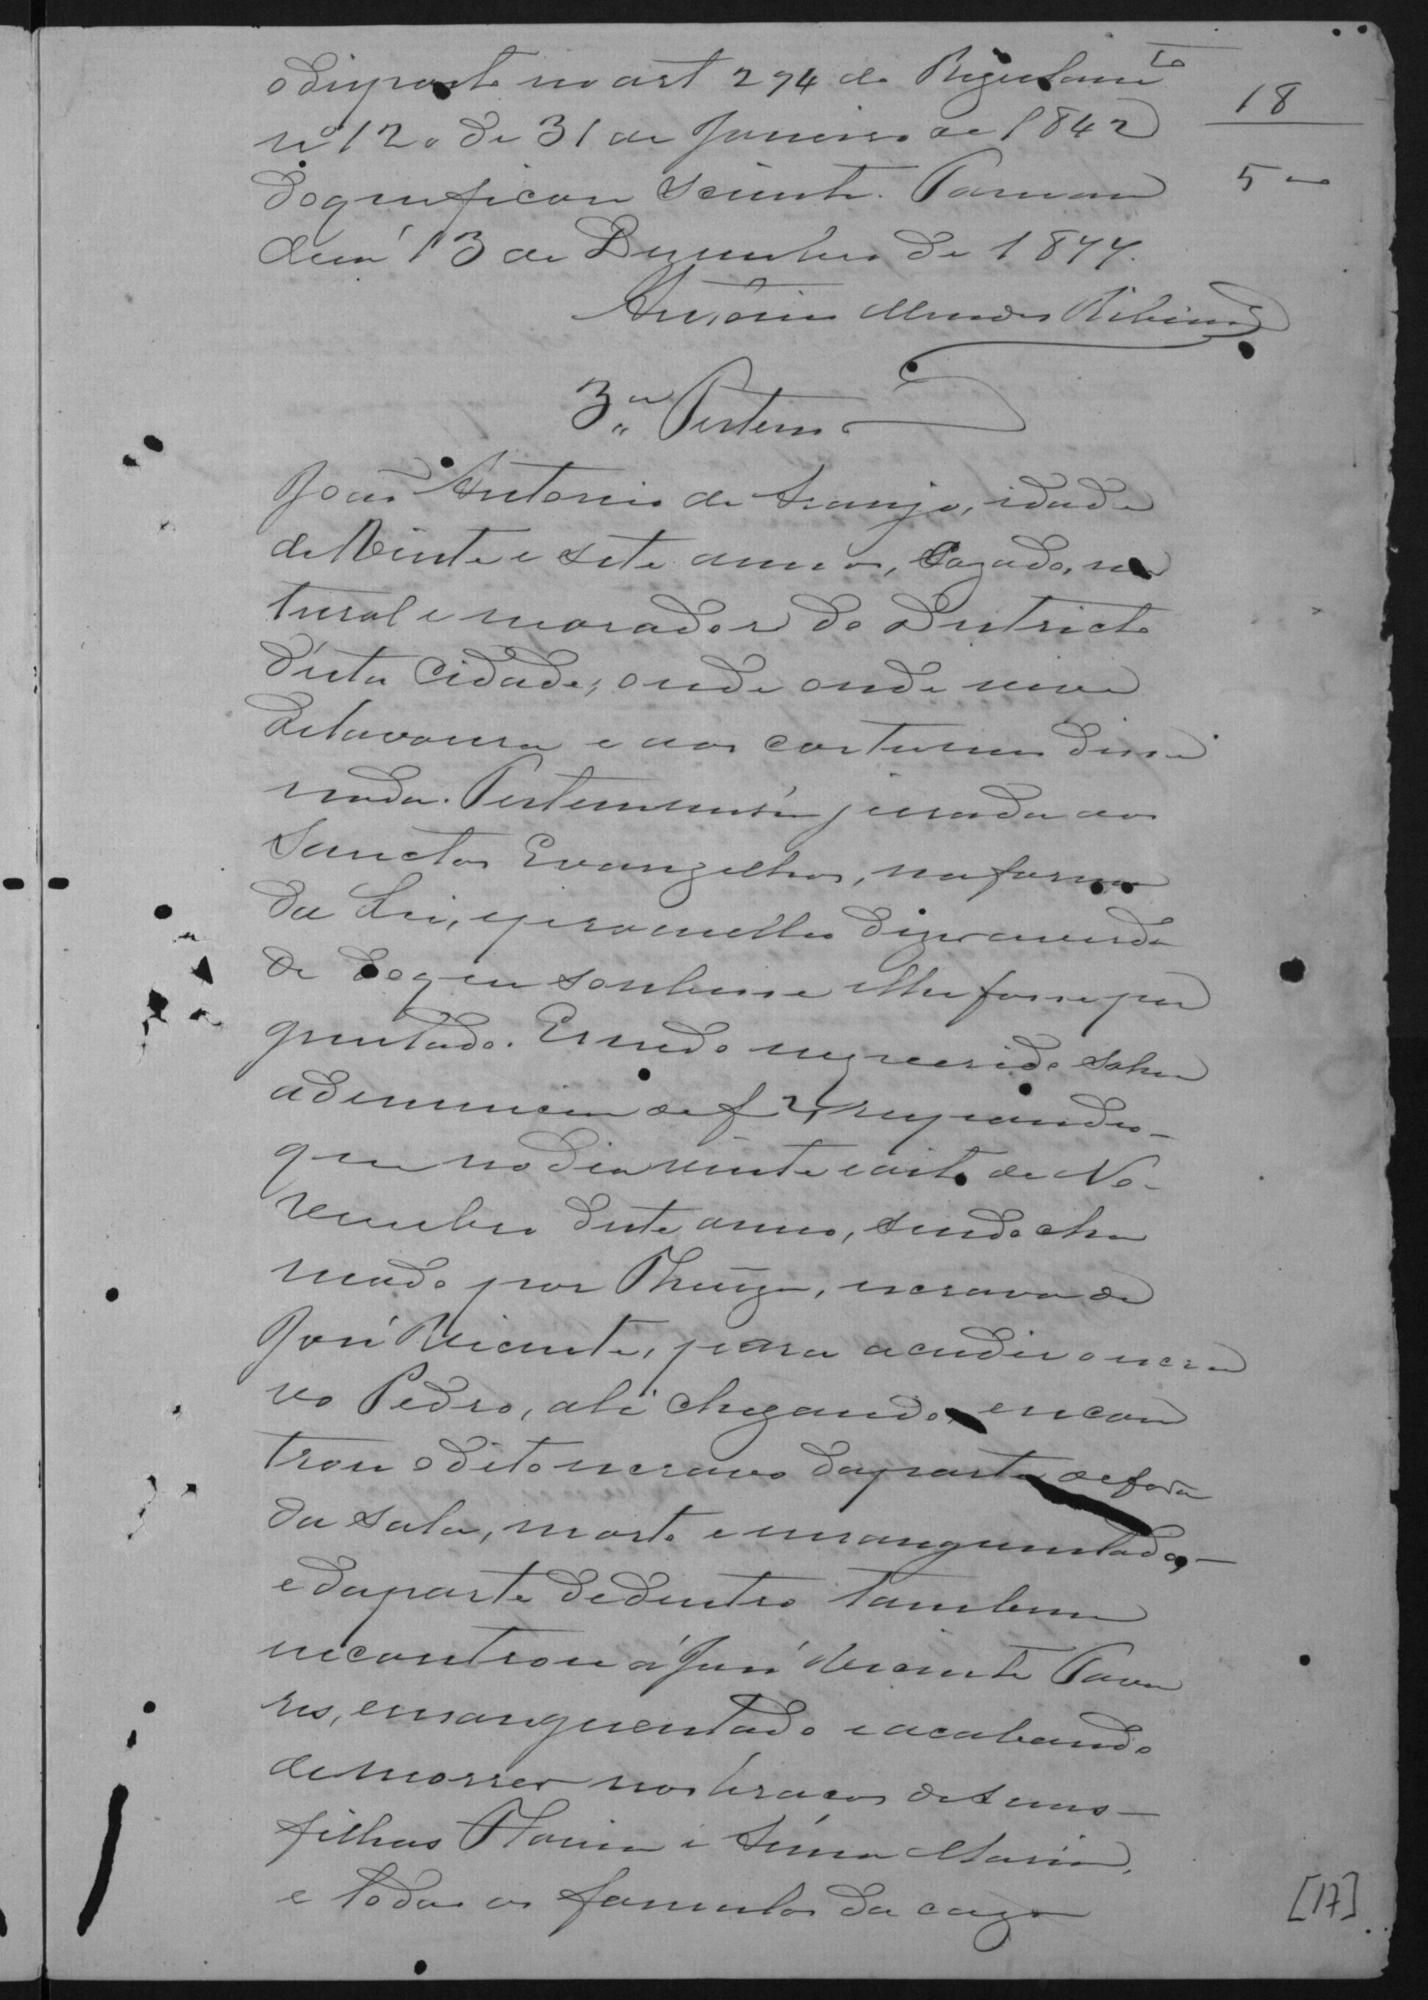 odisposto no art 294 do Regulam.to
nº 120 de 31 de Janeiro de 1842
18
5
doque ficou sciente. Parnam
de 13 de Dezembro de 1877.
Antonio Mendes Ribeiro
3.a Testem.a
João Antonio de Araujo, idade
de Vinte e sete annos, Cazado, na
tural e morador do Districto
d'esta Cidade, onde onde vive
delavoura e aos costumes disse
nada. Testemunha jurada aos
Sanctos Evangelhos, na forma
da Lei, eprometteo dizer averda
de doque soubesse elhe fosse per
guntado. Esendo inquerido sobre
adenuncia def 2, respondeo
que nodia vinte eoito de No-
vembro deste anno, sendo cha
mado por Thereza, escrava de
José Vicente, para acudir o escra
vo Pedro, ali chegando, encon
trou oditoescravo daparte defora
da sala, morto e ensanguentado,
e daparte dedentro tambem
encontrou á José Vicente Tava
res, ensanguentado eacabando
demorrer nos braços desuas
filhas Maria e Anna Maria,
e todos os famulos da caza
[17]